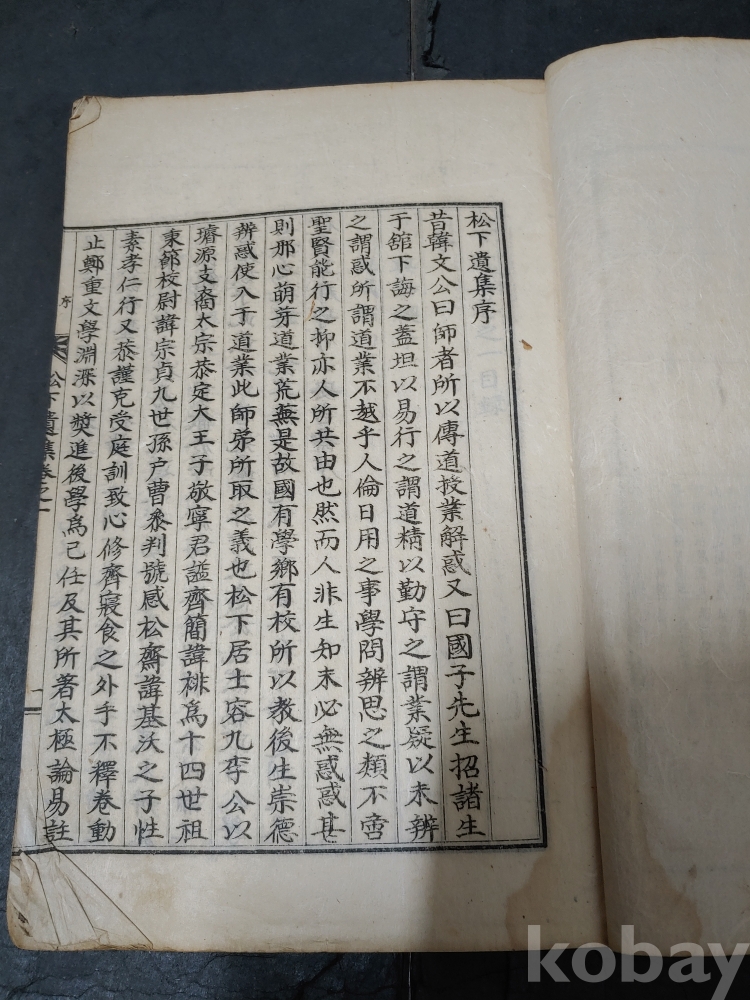 松下遺集序
昔韓文公曰師者所以傳道授業解惑又曰國子先生招諸生
于舘下誨之蓋坦以易行之謂道精以勤守之謂業疑以未辨
之謂惑所謂道業不越乎人倫日用之事學問辨思之類不啻
聖賢能行之抑亦人所共由也然而人非生知未必無惑惑甚
則邪心萌芽道業荒蕪是故國有學鄕有校所以敎後生崇德
辨惑使入于道業此師弟所取之義也松下居士容九李公以
璿源支裔太宗恭定大王子敬寧君謚齊簡諱裶爲十四世祖
秉節校尉諱宗貞九世孫户曹叅判號感松齋諱基沃之子性
素孝仁行又恭謹克受庭訓致心修齊寢食之外手不釋卷動
止鄭重文學淵深以奬進後學爲己任及其所著太極論易註
序
松下遺集卷之一
一
kobay